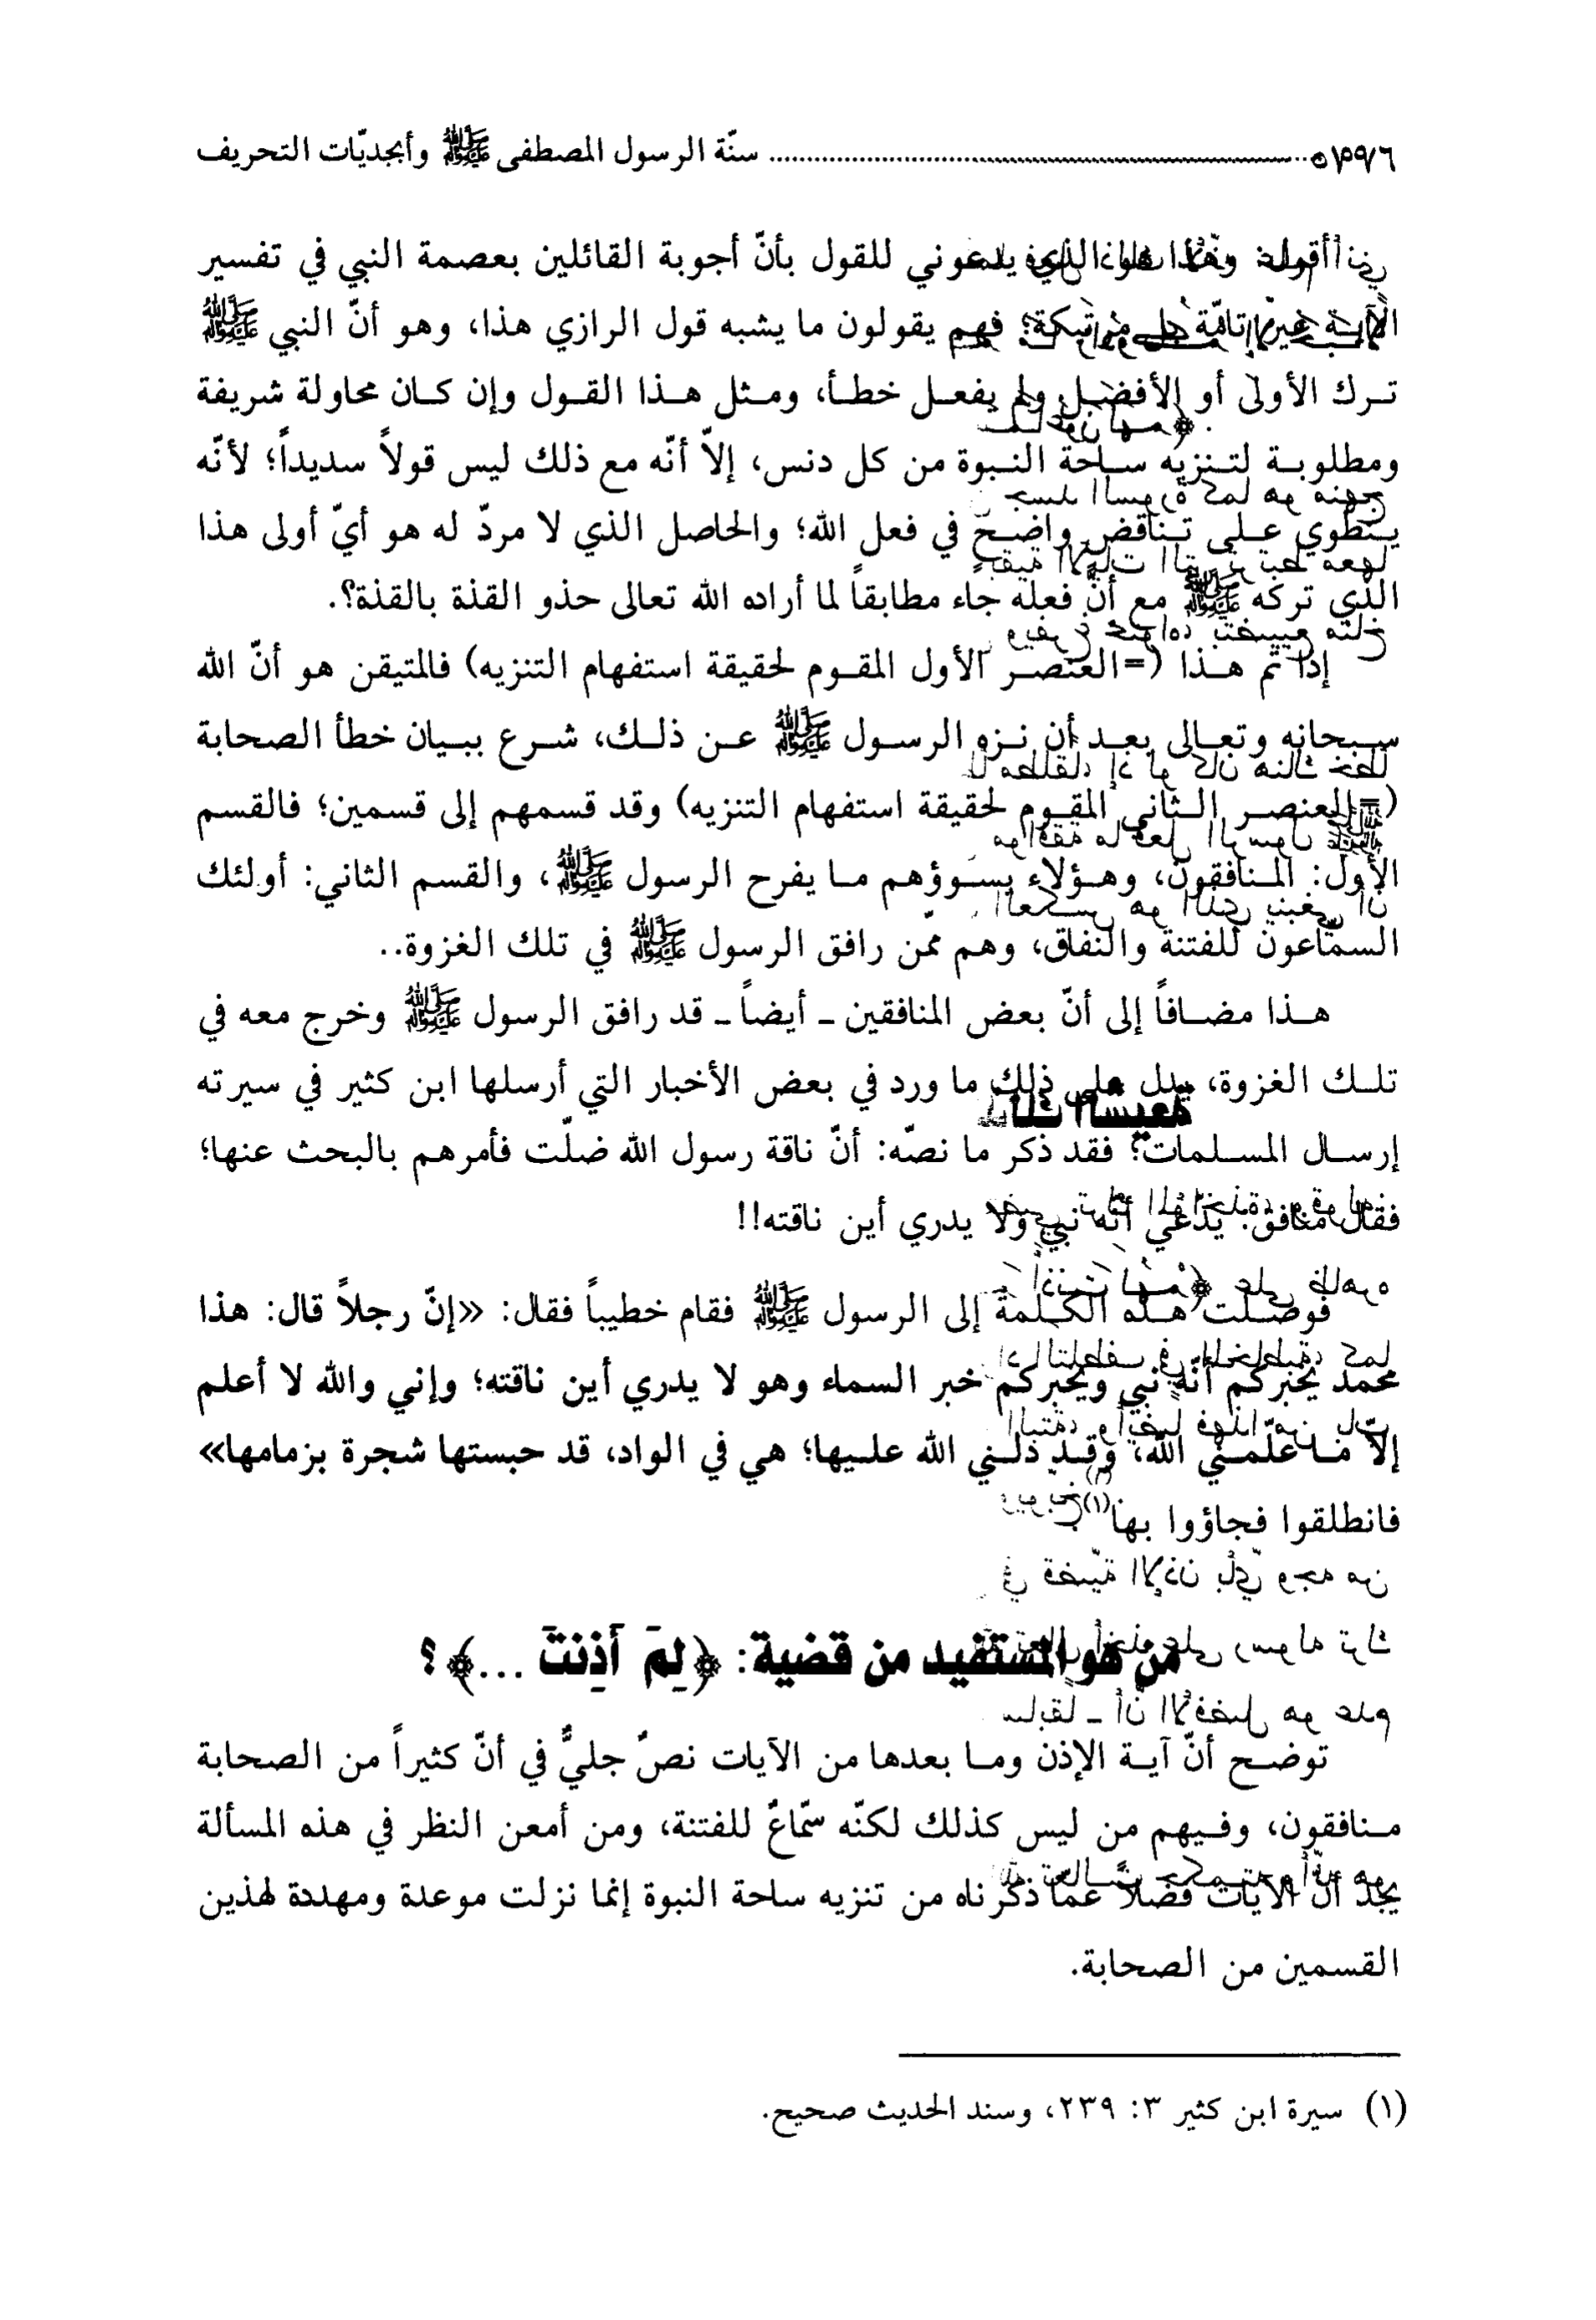 سنّة الرسول المصطفى ﷺ وأبجديّات التحريف
أقول: وهذا هو الذي يدعوني للقول بأنّ أجوبة القائلين بعصمة النبي في تفسير
الآية غير تامّة بل مرتبكة؛ فهم يقولون ما يشبه قول الرازي هذا، وهو أنّ النبي ﷺ
ترك الأولى أو الأفضل ولم يفعل خطأ، ومثل هذا القول وإن كان محاولة شريفة
ومطلوبة لتنزيه ساحة النبوة من كل دنس، إلاّ أنّه مع ذلك ليس قولاً سديداً؛ لأنّه
ينطوي على تناقض واضح في فعل الله؛ والحاصل الذي لا مردّ له هو أيّ أولى هذا
الذي تركه ﷺ مع أنّ فعله جاء مطابقاً لما أراده الله تعالى حذو القذة بالقذة؟.
إذا تم هذا (=العنصر الأول المقوم لحقيقة استفهام التنزيه) فالمتيقن هو أنّ الله
سبحانه وتعالى بعد أن نزه الرسول ﷺ عن ذلك، شرع ببيان خطأ الصحابة
(=العنصر الثاني المقوم لحقيقة استفهام التنزيه) وقد قسمهم إلى قسمين؛ فالقسم
الأول: المنافقون، وهؤلاء يسوؤهم ما يفرح الرسول ﷺ، والقسم الثاني: أولئك
السمّاعون للفتنة والنفاق، وهم ممّن رافق الرسول ﷺ في تلك الغزوة..
هذا مضافاً إلى أنّ بعض المنافقين ـ أيضاً ـ قد رافق الرسول ﷺ وخرج معه في
تلك الغزوة، يدل على ذلك ما ورد في بعض الأخبار التي أرسلها ابن كثير في سيرته
إرسال المسلمات؛ فقد ذكر ما نصّه: أنّ ناقة رسول الله ضلّت فأمرهم بالبحث عنها؛
فقال منافق: يدّعي أنّه نبي ولا يدري أين ناقته!!
فوصلت هذه الكلمة إلى الرسول ﷺ فقام خطيباً فقال: «إنّ رجلاً قال: هذا
محمد يخبركم أنّه نبي ويخبركم خبر السماء وهو لا يدري أين ناقته؛ وإني والله لا أعلم
إلاّ ما علّمني الله، وقد دلني الله عليها؛ هي في الواد، قد حبستها شجرة بزمامها»
فانطلقوا فجاؤوا بها(١)
من هو المستفيد من قضية: ﴿لِمَ أَذِنتَ ...﴾؟
توضح أنّ آية الإذن وما بعدها من الآيات نصٌ جليٌّ في أنّ كثيراً من الصحابة
منافقون، وفيهم من ليس كذلك لكنّه سمّاعٌ للفتنة، ومن أمعن النظر في هذه المسألة
يجد أنّ الآيات فضلاً عمّا ذكرناه من تنزيه ساحة النبوة إنما نزلت موعدة ومهددة لهذين
القسمين من الصحابة.
(١) سيرة ابن كثير ٣: ٢٣٩، وسند الحديث صحيح.